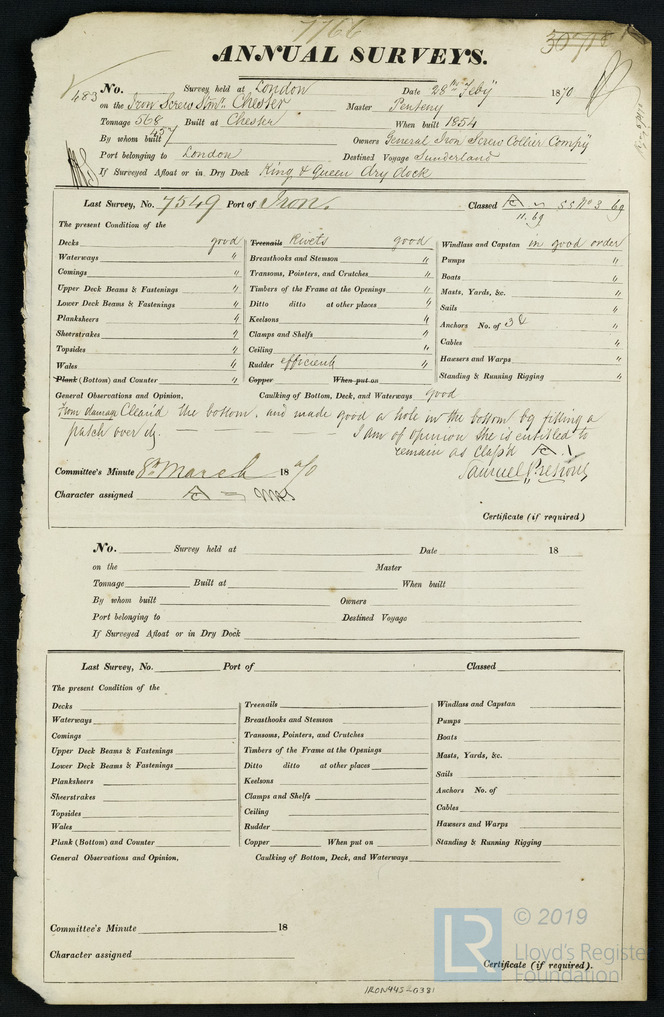 7766
ANNUAL SURVEYS.
483 No. Survey held at London Date 28th Feby 1870
on the Iron Screw Stmr Chester Master Penteny
Tonnage 568 Built at Chester When built 1854
457
By whom built Owners General Iron Screw Collier Compy
Port belonging to London Destined Voyage Sunderland
If Surveyed Afloat or in Dry Dock King & Queen Dry dock
Last Survey, No. 7549 Port of Iron. Classed A SS No 3 69
11.69
The present Condition of the
Decks good
Waterways "
Comings "
Upper Deck Beams & Fastenings "
Lower Deck Beams & Fastenings "
Planksheers "
Sheerstrakes "
Topsides "
Wales "
Plank (Bottom) and Counter "
Treenails Rivets good
Breasthooks and Stemson "
Transoms, Pointers, and Crutches "
Timbers of the Frame at the Openings "
Ditto ditto at other places "
Keelsons "
Clamps and Shelfs "
Ceiling "
Rudder efficient "
Copper When put on
Windlass and Capstan in good order
Pumps "
Boats "
Masts, Yards, &c. "
Sails "
Anchors No. of 3 "
Cables "
Hawsers and Warps "
Standing & Running Rigging "
General Observations and Opinion. Caulking of Bottom, Deck, and Waterways good
From damage Clear'd the bottom, and made good a hole in the bottom by fitting a
patch over it. I am of opinion She is entitled to
remain as Class'd A.1
Samuel Prestons
Committee's Minute 8th March 1870
Character assigned A
Certificate (if required)
No. Survey held at Date 18
on the Master
Tonnage Built at When built
By whom built Owners
Port belonging to Destined Voyage
If Surveyed Afloat or in Dry Dock
Last Survey, No. Port of Classed
The present Condition of the
Decks
Waterways
Comings
Upper Deck Beams & Fastenings
Lower Deck Beams & Fastenings
Planksheers
Sheerstrakes
Topsides
Wales
Plank (Bottom) and Counter
Treenails
Breasthooks and Stemson
Transoms, Pointers, and Crutches
Timbers of the Frame at the Openings
Ditto ditto at other places
Keelsons
Clamps and Shelfs
Ceiling
Rudder
Copper When put on
Windlass and Capstan
Pumps
Boats
Masts, Yards, &c.
Sails
Anchors No. of
Cables
Hawsers and Warps
Standing & Running Rigging
General Observations and Opinion, Caulking of Bottom, Deck, and Waterways
Committee's Minute 18
Character assigned
Certificate (if required).
LR © 2019
Lloyd's Register
Foundation
IRON445-0381